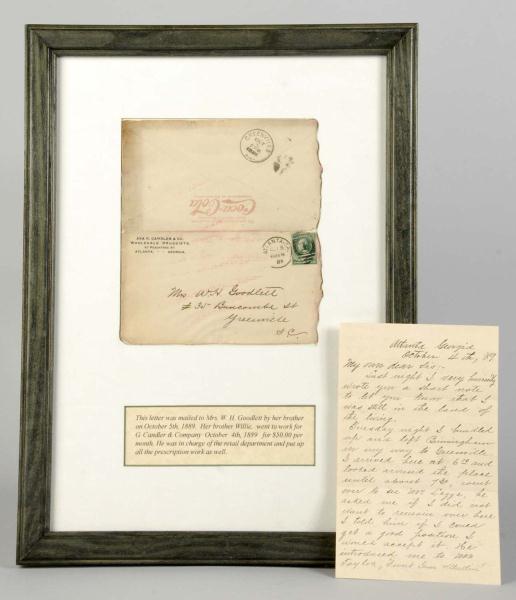 GREENVILLE
OCT
Coca-Cola
ASA G. CANDLER & CO.
WHOLESALE DRUGGISTS,
47 PEACHTREE ST.
ATLANTA, - - GEORGIA.
ATLANTA
Mrs. W. H. Goodlett
# 35 Buncombe St
Greenville
S.C.
This letter was mailed to Mrs. W. H. Goodlett by her brother
on October 5th, 1889. Her brother Willie, went to work for
G. Candler & Company October 4th, 1899 for $50.00 per
month. He was in charge of the retail department and put up
all the prescription work as well.
Atlanta Georgia
October 4th, '89
My own dear Sis:-
Last night I very hurriedly
wrote you a short note
to let you know that I
was still in the land of
the living.
Tuesday night I bundled
up and left Birmingham
on my way to Greenville
I arrived here at 6 and
looked around the place
until about 7, went
over to see Mr he
asked me if I did not
want to remain over here
I told him if I could
get a good position I
would accept it. He
introduced me to
Taylor,